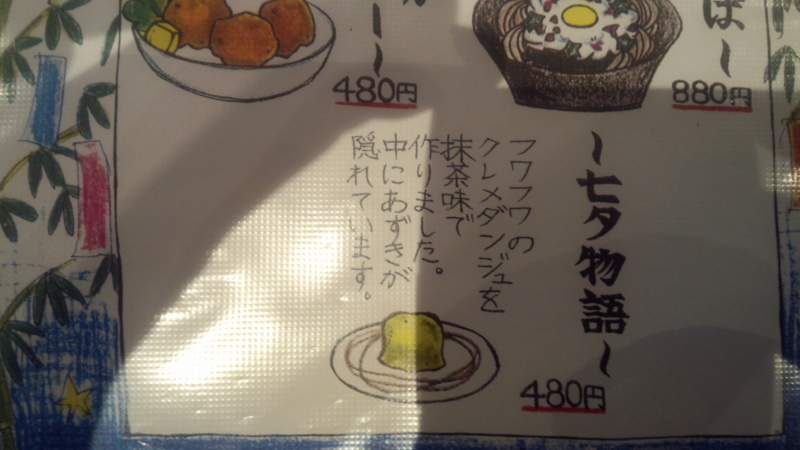 480円
ば〜
880円
〜七夕物語〜
フワフワの
クレメダンジュを
抹茶味で
作りました。
中にあずきが
隠れています。
480円